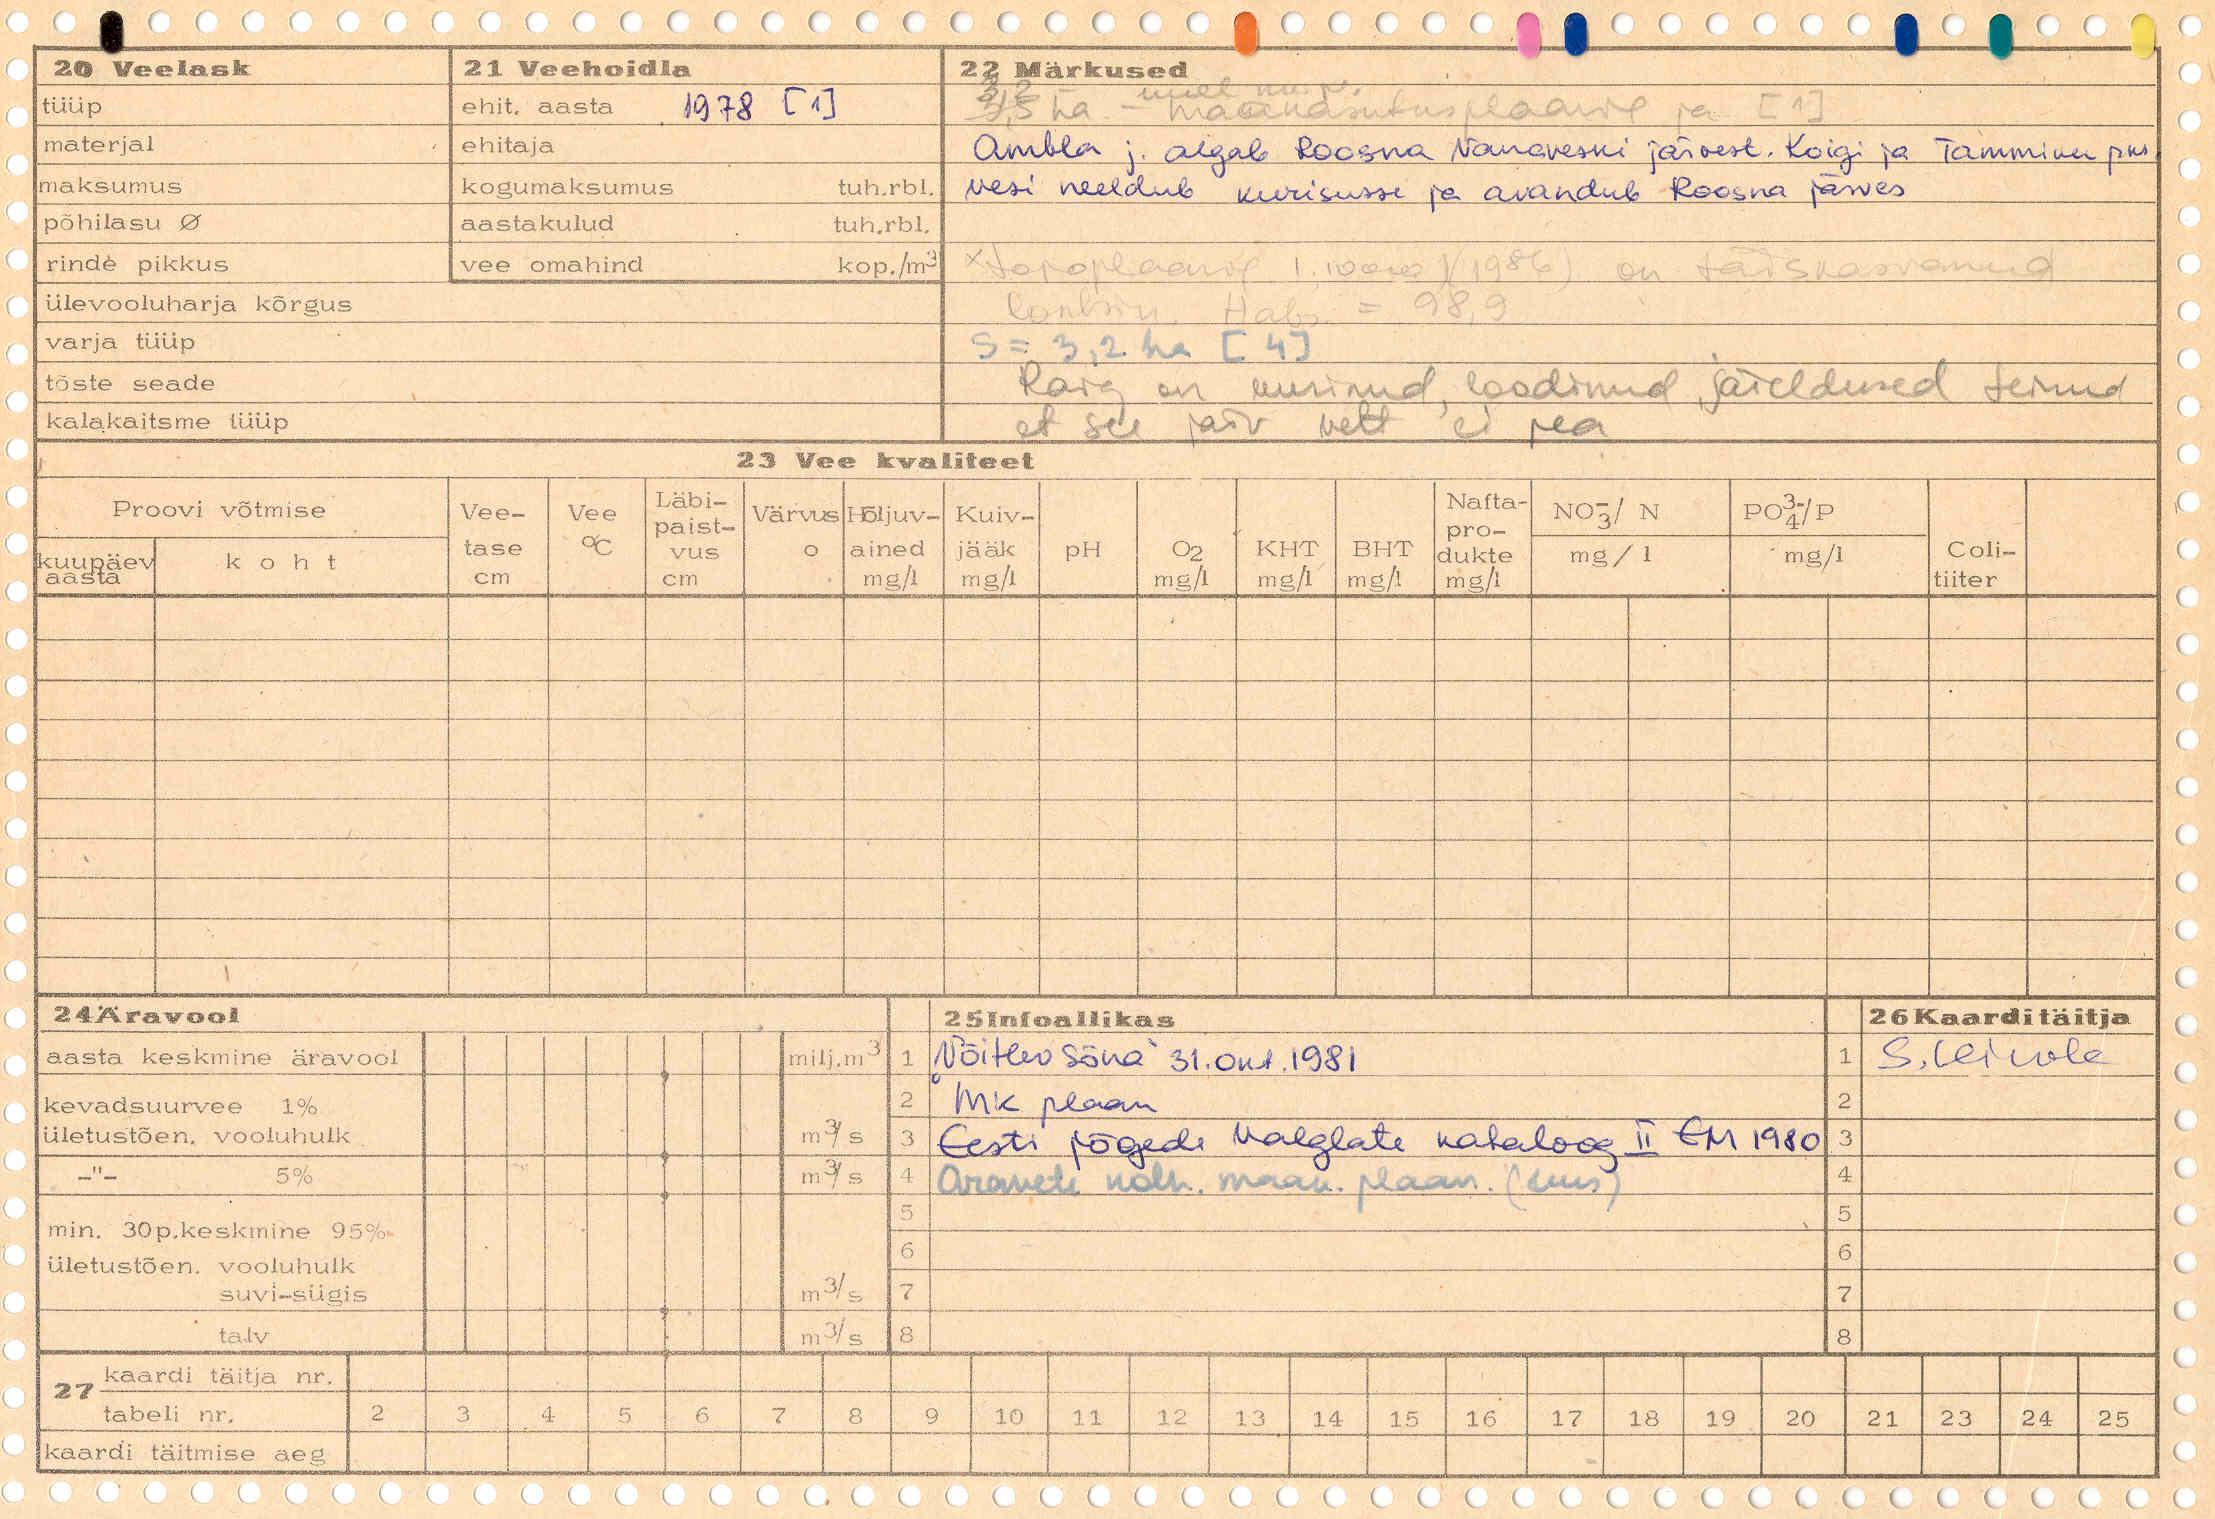 20 Veelask
tüüp
materjal
maksumus
põhilasu Ø
rinde pikkus
ülevooluharja kõrgus
varja tüüp
tõste seade
kalakaitsme tüüp
21 Veehoidla
ehit. aasta 1978 [1]
ehitaja
kogumaksumus tuh.rbl.
aastakulud tuh.rbl.
vee omahind kop./m³
22 Märkused
3,2
3,5 ha - maakasutusplaanil ja [1]
Ambla j. algab Roosna Vanaveski järvest. Koigi ja Tammiku pkr
vesi neeldub kurisusse ja avandub Roosna järves
x topoplaanil 1:10000 (1986) on täiskasvanud
lontsik. Habs. = 98,9
S = 3,2 ha [4]
Raig on uurinud, loodinud, järeldused teinud
et see järv vett ei pea
23 Vee kvaliteet
Proovi võtmise
kuupäev aasta
koht
Vee-tase cm
Vee °C
Läbi-paist-vus cm
Värvus o
Hõljuv-ained mg/l
Kuiv-jääk mg/l
pH
O2 mg/l
KHT mg/l
BHT mg/l
Nafta-pro-dukte mg/l
NO₃⁻/ N mg/l
PO₄³⁻/P mg/l
Coli-tiiter
24 Äravool
aasta keskmine äravool milj.m³
kevadsuurvee 1%
ületustõen. vooluhulk m³/s
-"- 5% m³/s
min. 30p.keskmine 95%
ületustõen. vooluhulk
suvi-sügis m³/s
talv m³/s
25 Infoallikas
1 "Võitlev Sõna" 31.okt.1981
2 MK plaan
3 Eesti jõgede valglate kataloog II EM 1980
4 Aravete kolh. maak. plaan. (uus)
5
6
7
8
26 Kaarditäitja
1
2
3
4
5
6
7
8
27 kaardi täitja nr.
tabeli nr. 2 3 4 5 6 7 8 9 10 11 12 13 14 15 16 17 18 19 20 21 23 24 25
kaardi täitmise aeg